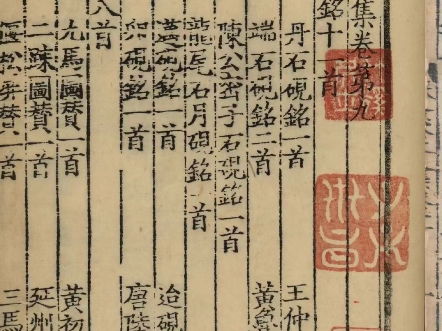 集卷第九
銘十一首
丹石硯銘一首 王仲
端石硯銘二首 黃魯
陳公密子石硯銘一首
龍尾石月硯銘一首
邁硯銘一首 迨硯
卵硯銘一首 唐陸
八首
九馬圖贊一首 黃初
二疎圖贊一首 延州
松屏贊一首 三馬